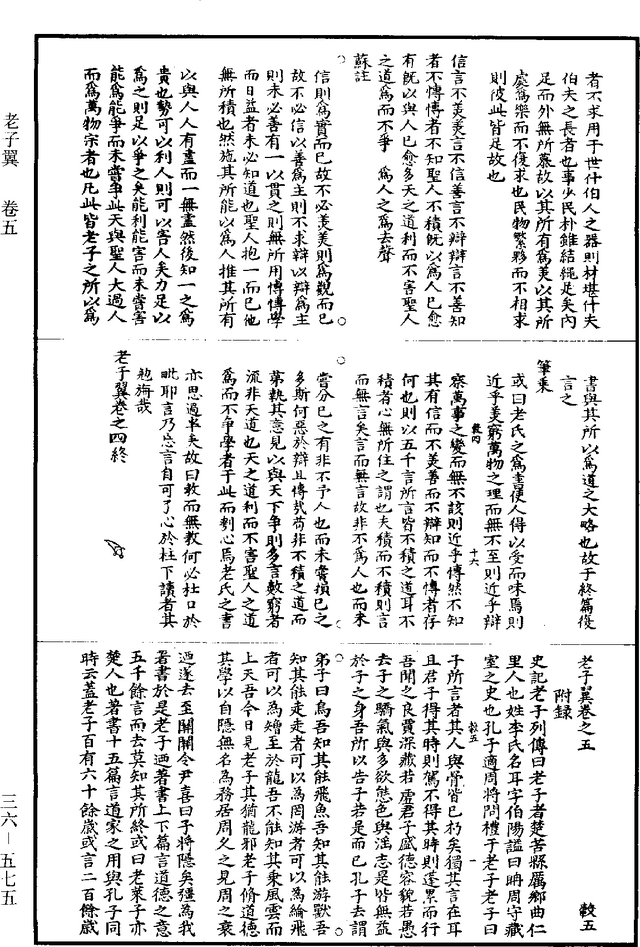 老子翼 卷五
三六—五七五
者不求用于世什伯人之器則材堪什夫
伯夫之長者也事少民朴雖結繩足矣內
足而外無所慕故以其所有為美以其所
處為樂而不復求也民物繁夥而不相求
則彼此皆足故也
信言不美美言不信善言不辯辯言不善知
者不博博者不知聖人不積既以為人已愈
有既以與人已愈多天之道利而不害聖人
之道為而不爭 為人之為去聲
蘇註
信則為實而已故不必美美則為觀而已
故不必信以善為主則不求辯以辯為主
則未必善有一以貫之則無所用博博學
而日益者未必知道也聖人抱一而已他
無所積也然施其所能以為人推其所有
以與人人有盡而一無盡然後知一之為
貴也勢可以利人則可以害人矣力足以
為之則足以爭之矣能利能害而未嘗害
能為能爭而未嘗爭此天與聖人大過人
而為萬物宗者也凡此皆老子之所以為
書與其所以為道之大略也故于終篇復
言之
筆乘
或曰老氏之為書使人得以受而味焉則
近乎美窮萬物之理而無不至則近乎辯
察萬事之變而無不該則近乎博然不知
其有信而不美善而不辯知而不博者存
何也則以五千言所言皆不積之道耳不
積者心無所住之謂也夫積而不積則言
而無言矣言而無言故非不為人也而未
嘗分已之有非不予人也而未嘗損已之
多斯何惡於辯且博哉苟非不積之道而
第執其意見以與天下爭則多言數窮者
流非天道也天之道利而不害聖人之道
為而不爭學者于此而刳心焉老氏之書
亦思過半矣故曰教而無教何必杜口於
毗耶言乃忘言自可了心於柱下讀者其
勉旃哉
老子翼卷之四終
老子翼卷之五 敢五
附錄
史記老子列傳曰老子者楚苦縣厲鄉曲仁
里人也姓李氏名耳字伯陽謚曰聃周守藏
室之史也孔子適周將問禮于老子老子曰
子所言者其人與骨皆已朽矣獨其言在耳
且君子得其時則駕不得其時則蓬累而行
吾聞之良賈深藏若虛君子盛德容貌若愚
去子之驕氣與多欲態色與淫志是皆無益
於子之身吾所以告子若是而已孔子去謂
弟子曰鳥吾知其能飛魚吾知其能游獸吾
知其能走走者可以為罔游者可以為綸飛
者可以為矰至於龍吾不能知其乘風雲而
上天吾今日見老子其猶龍邪老子脩道德
其學以自隱無名為務居周久之見周之衰
迺遂去至關關令尹喜曰子將隱矣彊為我
著書於是老子迺著書上下篇言道德之意
五千餘言而去莫知其所終或曰老萊子亦
楚人也著書十五篇言道家之用與孔子同
時云蓋老子百有六十餘歲或言二百餘歲